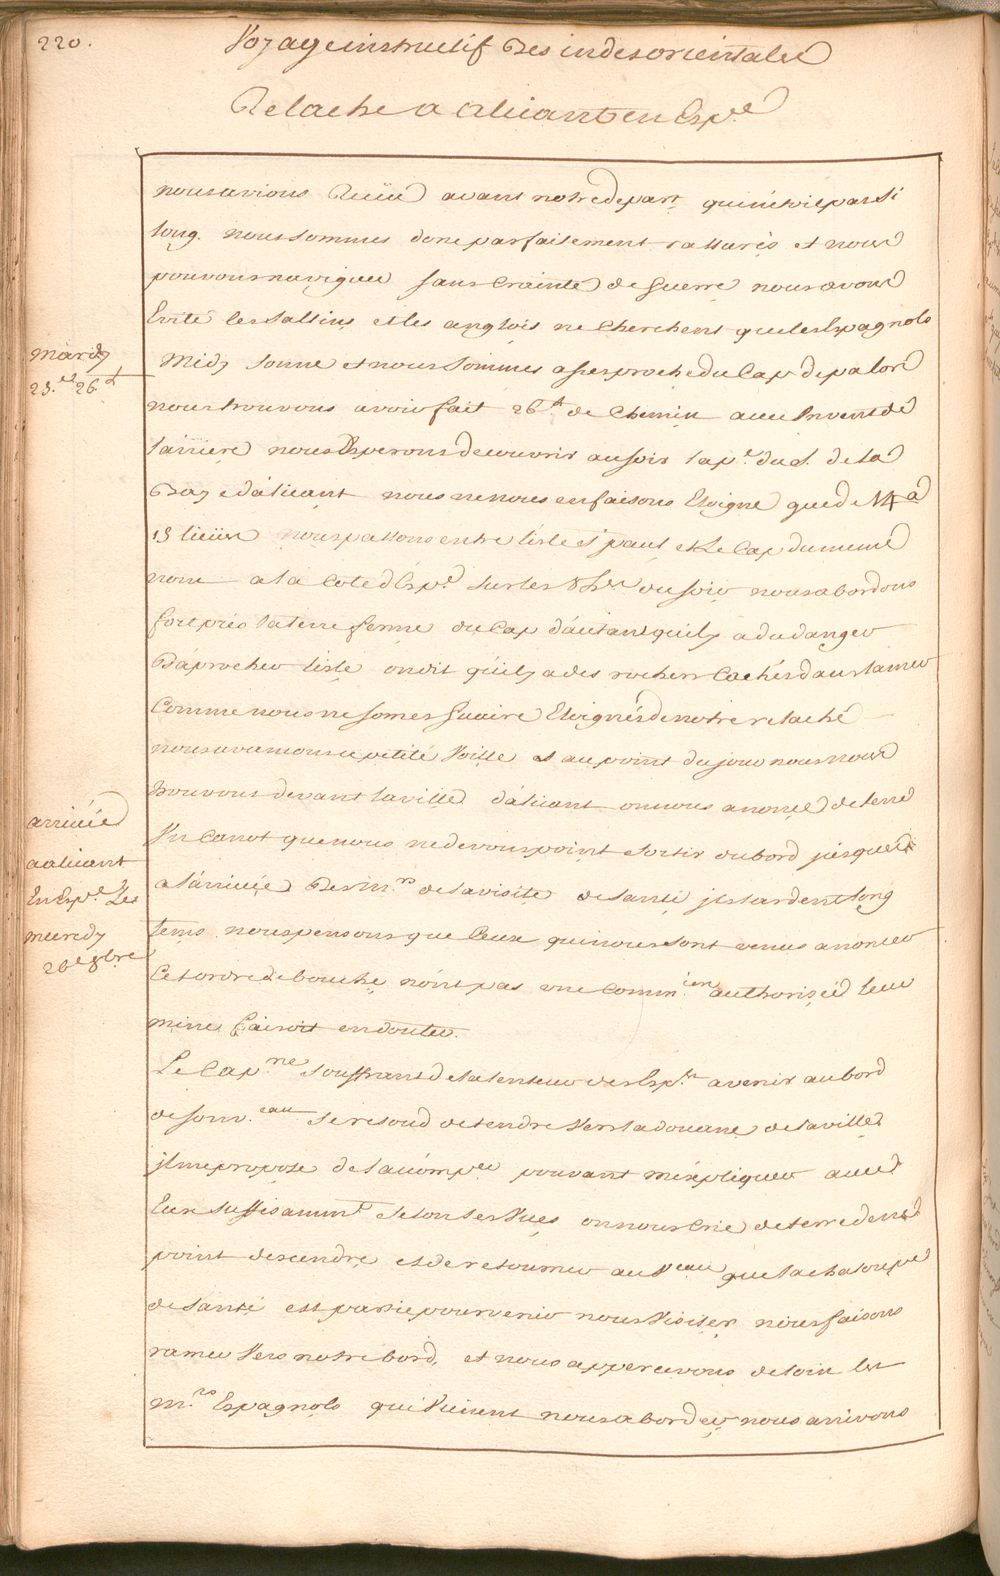 220.
Voyage instructif Des indes orientales
Relache a alicant en Esp.e
nous avions Reçeü avant notre depart qui n'étoit pas si
long. nous sommes donc parfaitement rassurés et nous
pouvons naviguer sans Crainte de Guerre nous avons
Evité les saltins et les anglois ne Cherchent que les Espagnols
Mardy
25.e 26.d
Midy sonne et nous sommes asses proche du Cap de palos
nous trouvons avoir fait 26.d de Chemin avec un vent de
l'arriere nous Esperons decouvrir au soir la p.e du s. de la
Baye d'alicant nous ne nous en faisons Eloigné que de 14 a
15 lieües nous passons entre l'isle s.t paul et Le Cap du meme
nom a la Cote d'Esp.e sur les 8 h.res du soir nous abordons
fort près la terre ferme du Cap d'autant qu'il y a du danger
D'aprocher l'isle on dit qu'il y a des rochers Cachés dans la mer
Comme nous ne somes Guaire Eloignés de notre relaché
nous avansons a petite Voille et au point du jour nous nous
trouvons devant la ville d'alicant on nous anonce de terre
arrivée
a alicant
En Esp.e Les
mercredy
26e 8bre
Un Canot que nous ne devons point sortir du bord jusques
a l'arrivée Des m.rs de la visite de santé ils tardent long
tems nous pensons que Ceux qui nous sont venus anoncer
Cet ordre de bouche n'ont pas une Comm.ion authorisée leur
mine faisoit en douter.
Le Cap.ne souffrant de la lenteur des Esp.ls a venir au bord
de son v.eau se resoud de tendre Vers la douane de la ville
il me propose de l'acomp.er pouvant m'expliquer avec
Eux suffisamm.t selon ses Vues on nous Crie de terre de ne
point descendre et de retourner au V.eau que la chaloupe
de santé est partie pour venir nous Visiter nous faisons
ramer Vers notre bord, et nous appercevons de loin les
m.rs Espagnols qui Viennent nous aborder nous arrivons